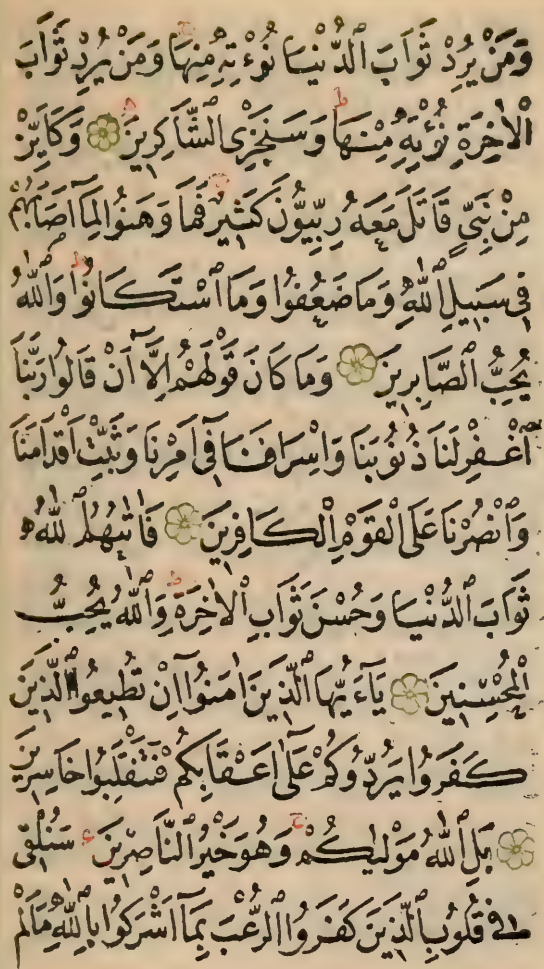 وَمَنْ يُرِدْ ثَوَابَ الدُّنْيَا نُؤْتِهِ مِنْهَا وَمَنْ يُرِدْ ثَوَابَ
الْاٰخِرَةِ نُؤْتِهِ مِنْهَا وَسَنَجْزِى الشَّاكِرِينَ وَكَاَيِّنْ
مِنْ نَبِىٍّ قَاتَلَ مَعَهُ رِبِّيُّونَ كَثِيرٌ فَمَا وَهَنُوا لِمَٓا اَصَابَهُمْ
فِى سَبِيلِ اللّٰهِ وَمَا ضَعُفُوا وَمَا اسْتَكَانُوا وَاللّٰهُ
يُحِبُّ الصَّابِرِينَ وَمَا كَانَ قَوْلَهُمْ اِلَّٓا اَنْ قَالُوا رَبَّنَا
اغْفِرْ لَنَا ذُنُوبَنَا وَاِسْرَافَنَا فِٓى اَمْرِنَا وَثَبِّتْ اَقْدَامَنَا
وَانْصُرْنَا عَلَى الْقَوْمِ الْكَافِرِينَ فَاٰتٰيهُمُ اللّٰهُ
ثَوَابَ الدُّنْيَا وَحُسْنَ ثَوَابِ الْاٰخِرَةِ وَاللّٰهُ يُحِبُّ
الْمُحْسِنِينَ يَٓا اَيُّهَا الَّذِينَ اٰمَنُٓوا اِنْ تُطِيعُوا الَّذِينَ
كَفَرُوا يَرُدُّوكُمْ عَلٰٓى اَعْقَابِكُمْ فَتَنْقَلِبُوا خَاسِرِينَ
بَلِ اللّٰهُ مَوْلٰيكُمْ وَهُوَ خَيْرُ النَّاصِرِينَ سَنُلْقِى
فِى قُلُوبِ الَّذِينَ كَفَرُوا الرُّعْبَ بِمَٓا اَشْرَكُوا بِاللّٰهِ مَا لَمْ